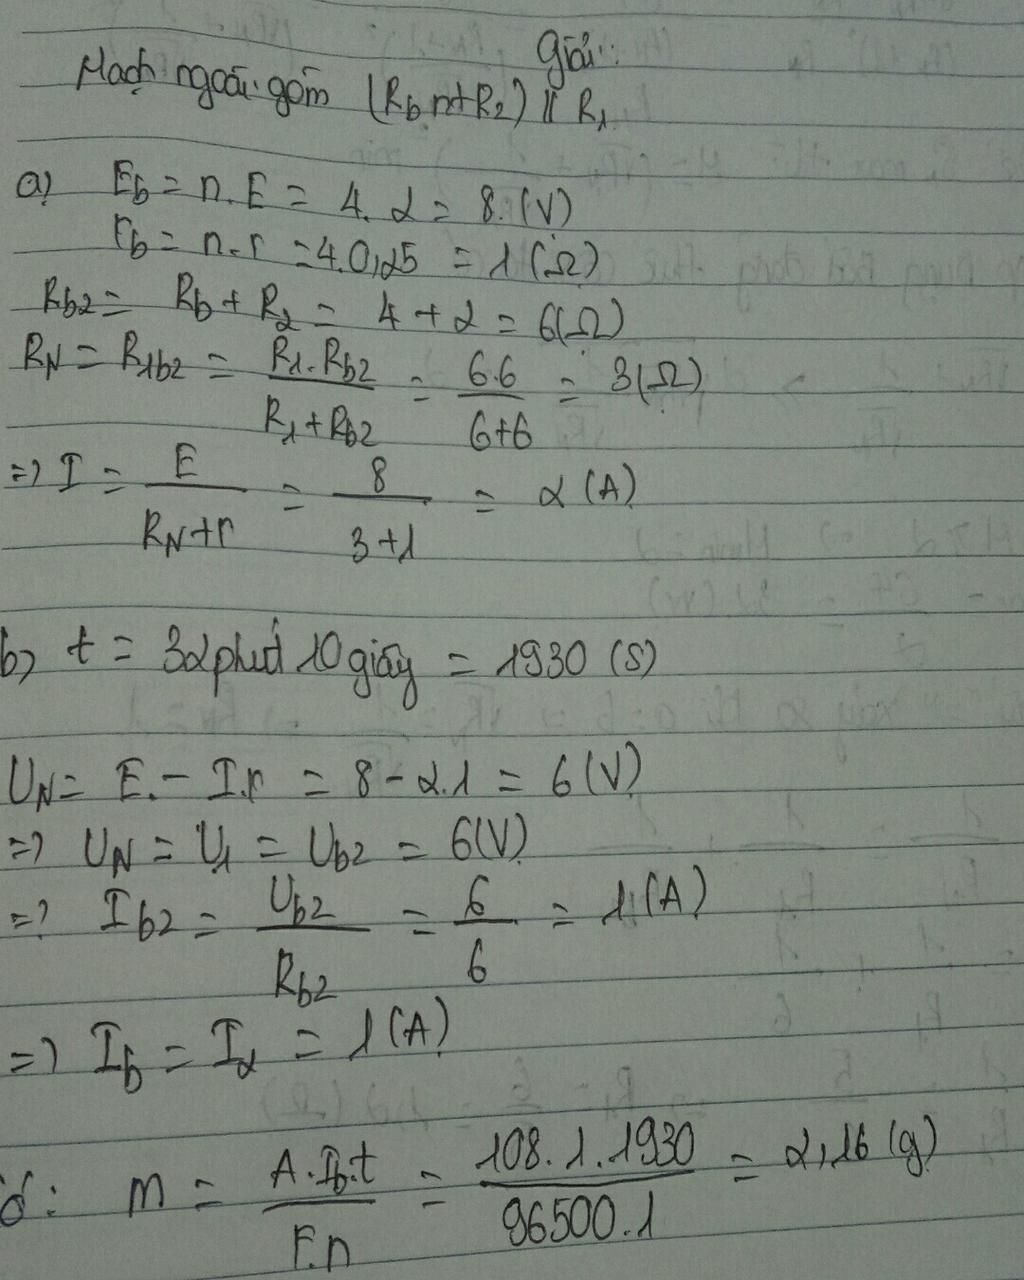 Giải:
Mạch ngoài gồm (Rb nt R2) // R1
a) Eb = n.E = 4.2 = 8.(V)
rb = n.r = 4.0,25 = 1 (Ω)
Rb2 = Rb + R2 = 4 + 2 = 6(Ω)
RN = R1b2 = R1.Rb2 / R1+Rb2 = 6.6 / 6+6 = 3(Ω)
=> I = E / RN+r = 8 / 3+1 = 2 (A)
b) t = 32 phút 10 giây = 1930 (s)
UN = E. - I.r = 8 - 2.1 = 6 (V)
=> UN = U1 = Ub2 = 6(V)
=> Ib2 = Ub2 / Rb2 = 6 / 6 = 1 (A)
=> Ib = I2 = 1 (A)
m = A.Ib.t / F.n = 108.1.1930 / 96500.1 = 2,16 (g)